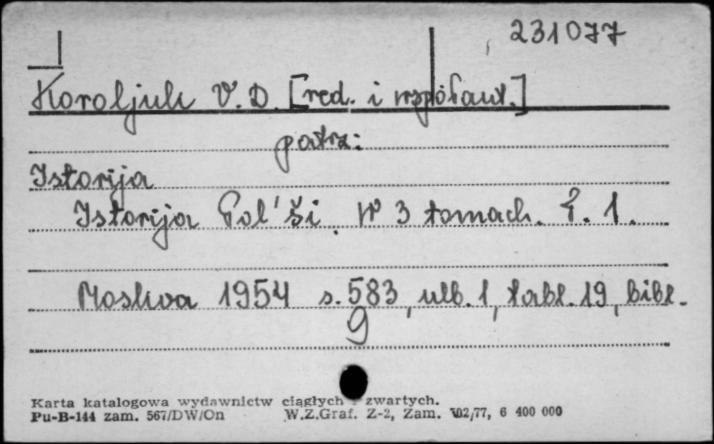 231077
Koroljuk V. D. [red. i współaut.]
patrz:
Istorija
Istorija Pol'ši. W 3 tomach. T. 1.
Moskva 1954 s. 583, ulb. 1, tabl. 19, bibl.
9
Karta katalogowa wydawnictw ciągłych i zwartych.
Pu-B-144 zam. 567/DW/On W.Z.Graf. Z-2, Zam. 702/77, 6 400 000